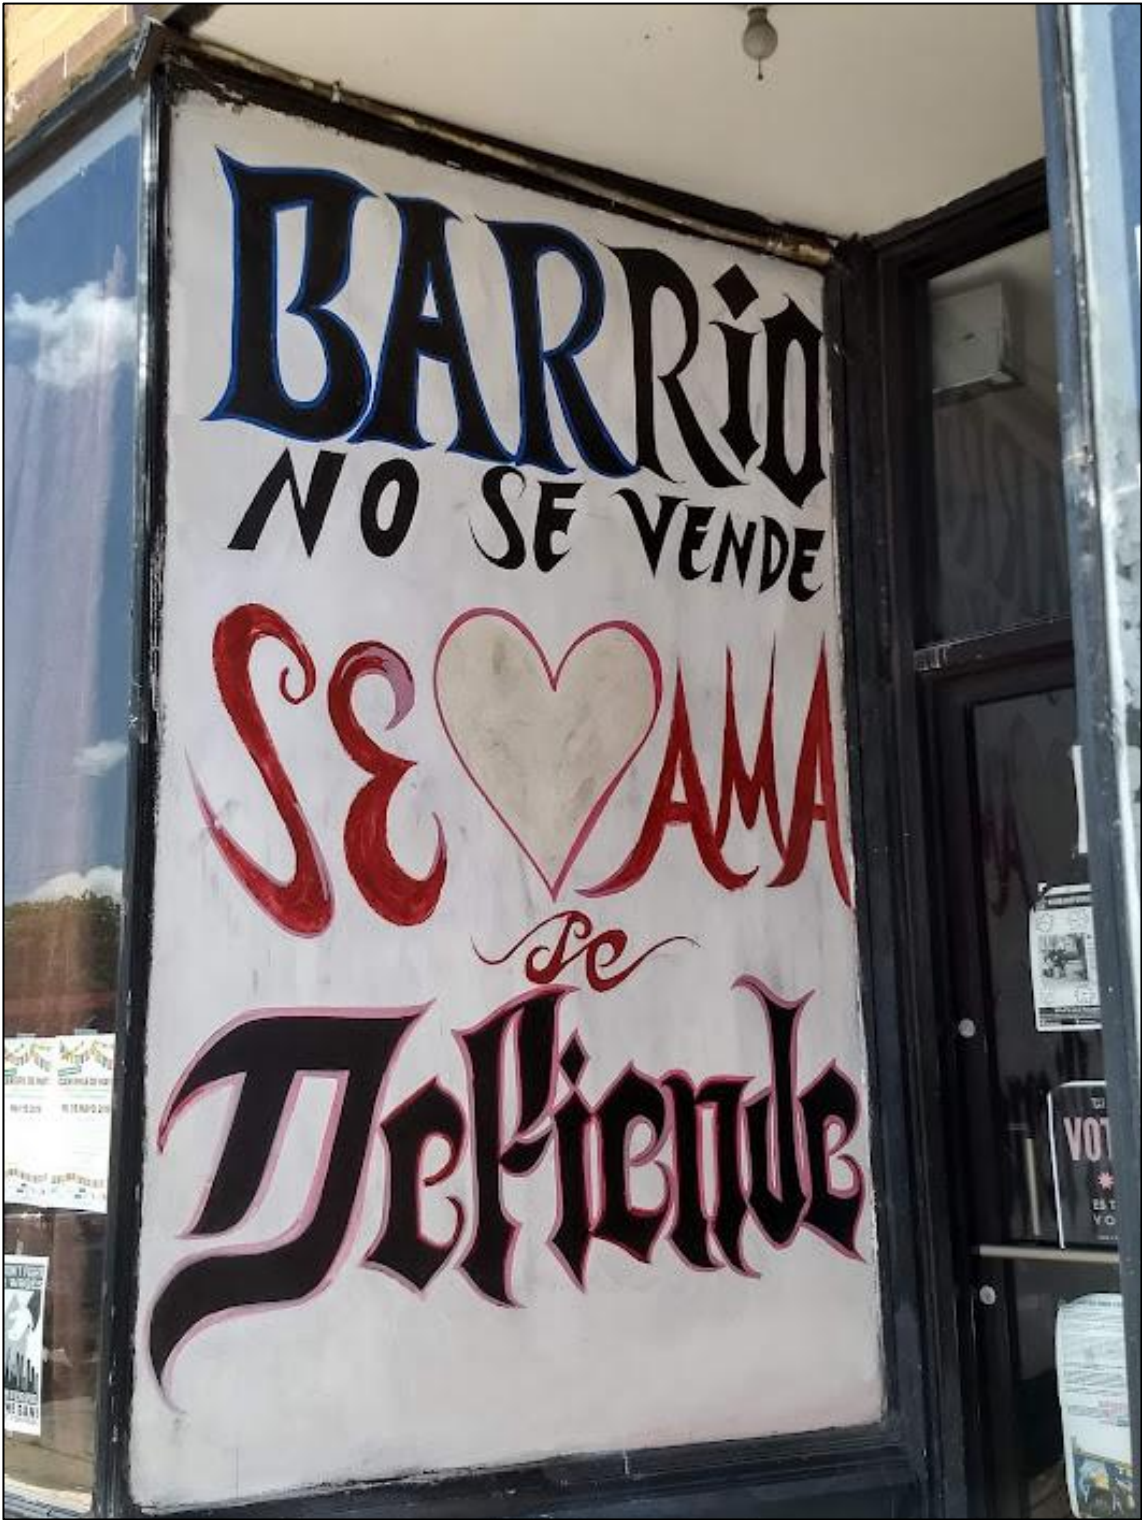 BARRiO
NO SE VENDE
SE AMA
se
Defiende
VOT